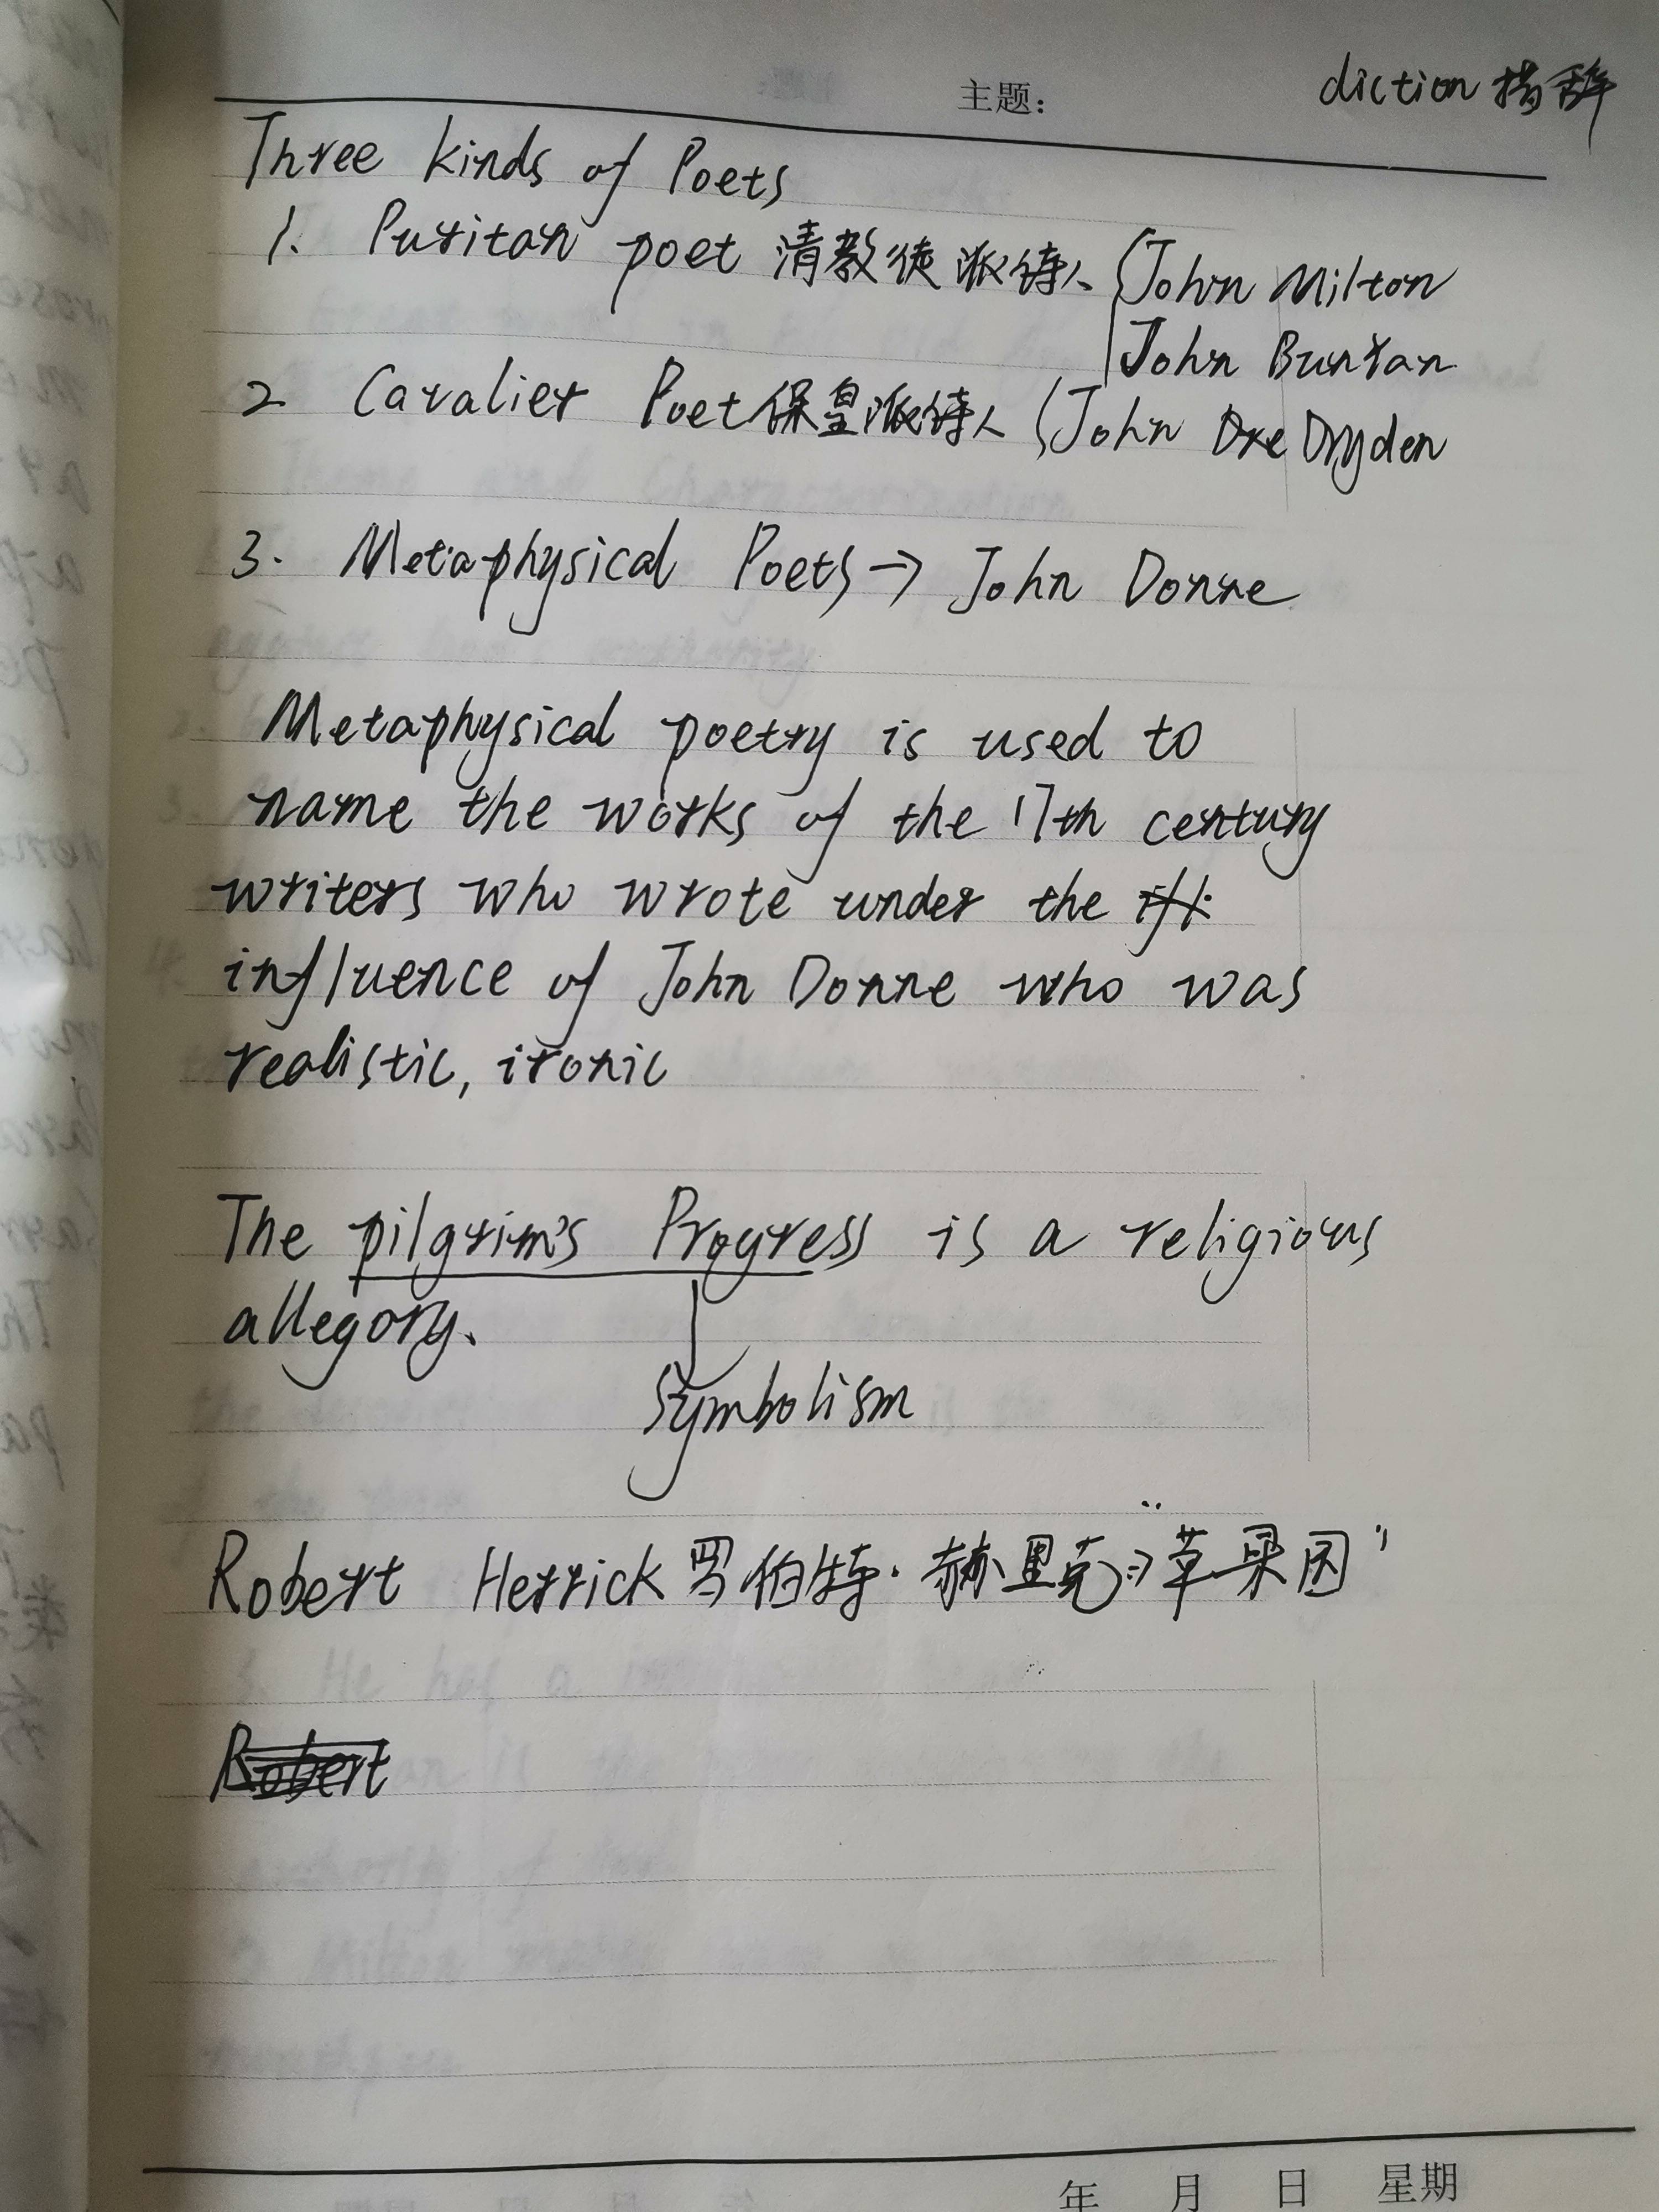 主题:
diction 措辞
Three kinds of Poets
1. Puritan poet 清教徒派诗人 { John Milton
John Bunyan
2 Cavalier Poet 保皇派诗人 ( John Dre Dryden
3. Metaphysical Poets → John Donne
Metaphysical poetry is used to
name the works of the 17th century
writers who wrote under the
influence of John Donne who was
realistic, ironic
The pilgrim's Progress is a religious
allegory.
Symbolism
Robert Herrick 罗伯特·赫里克 => "苹果园"
Robert
年 月 日 星期